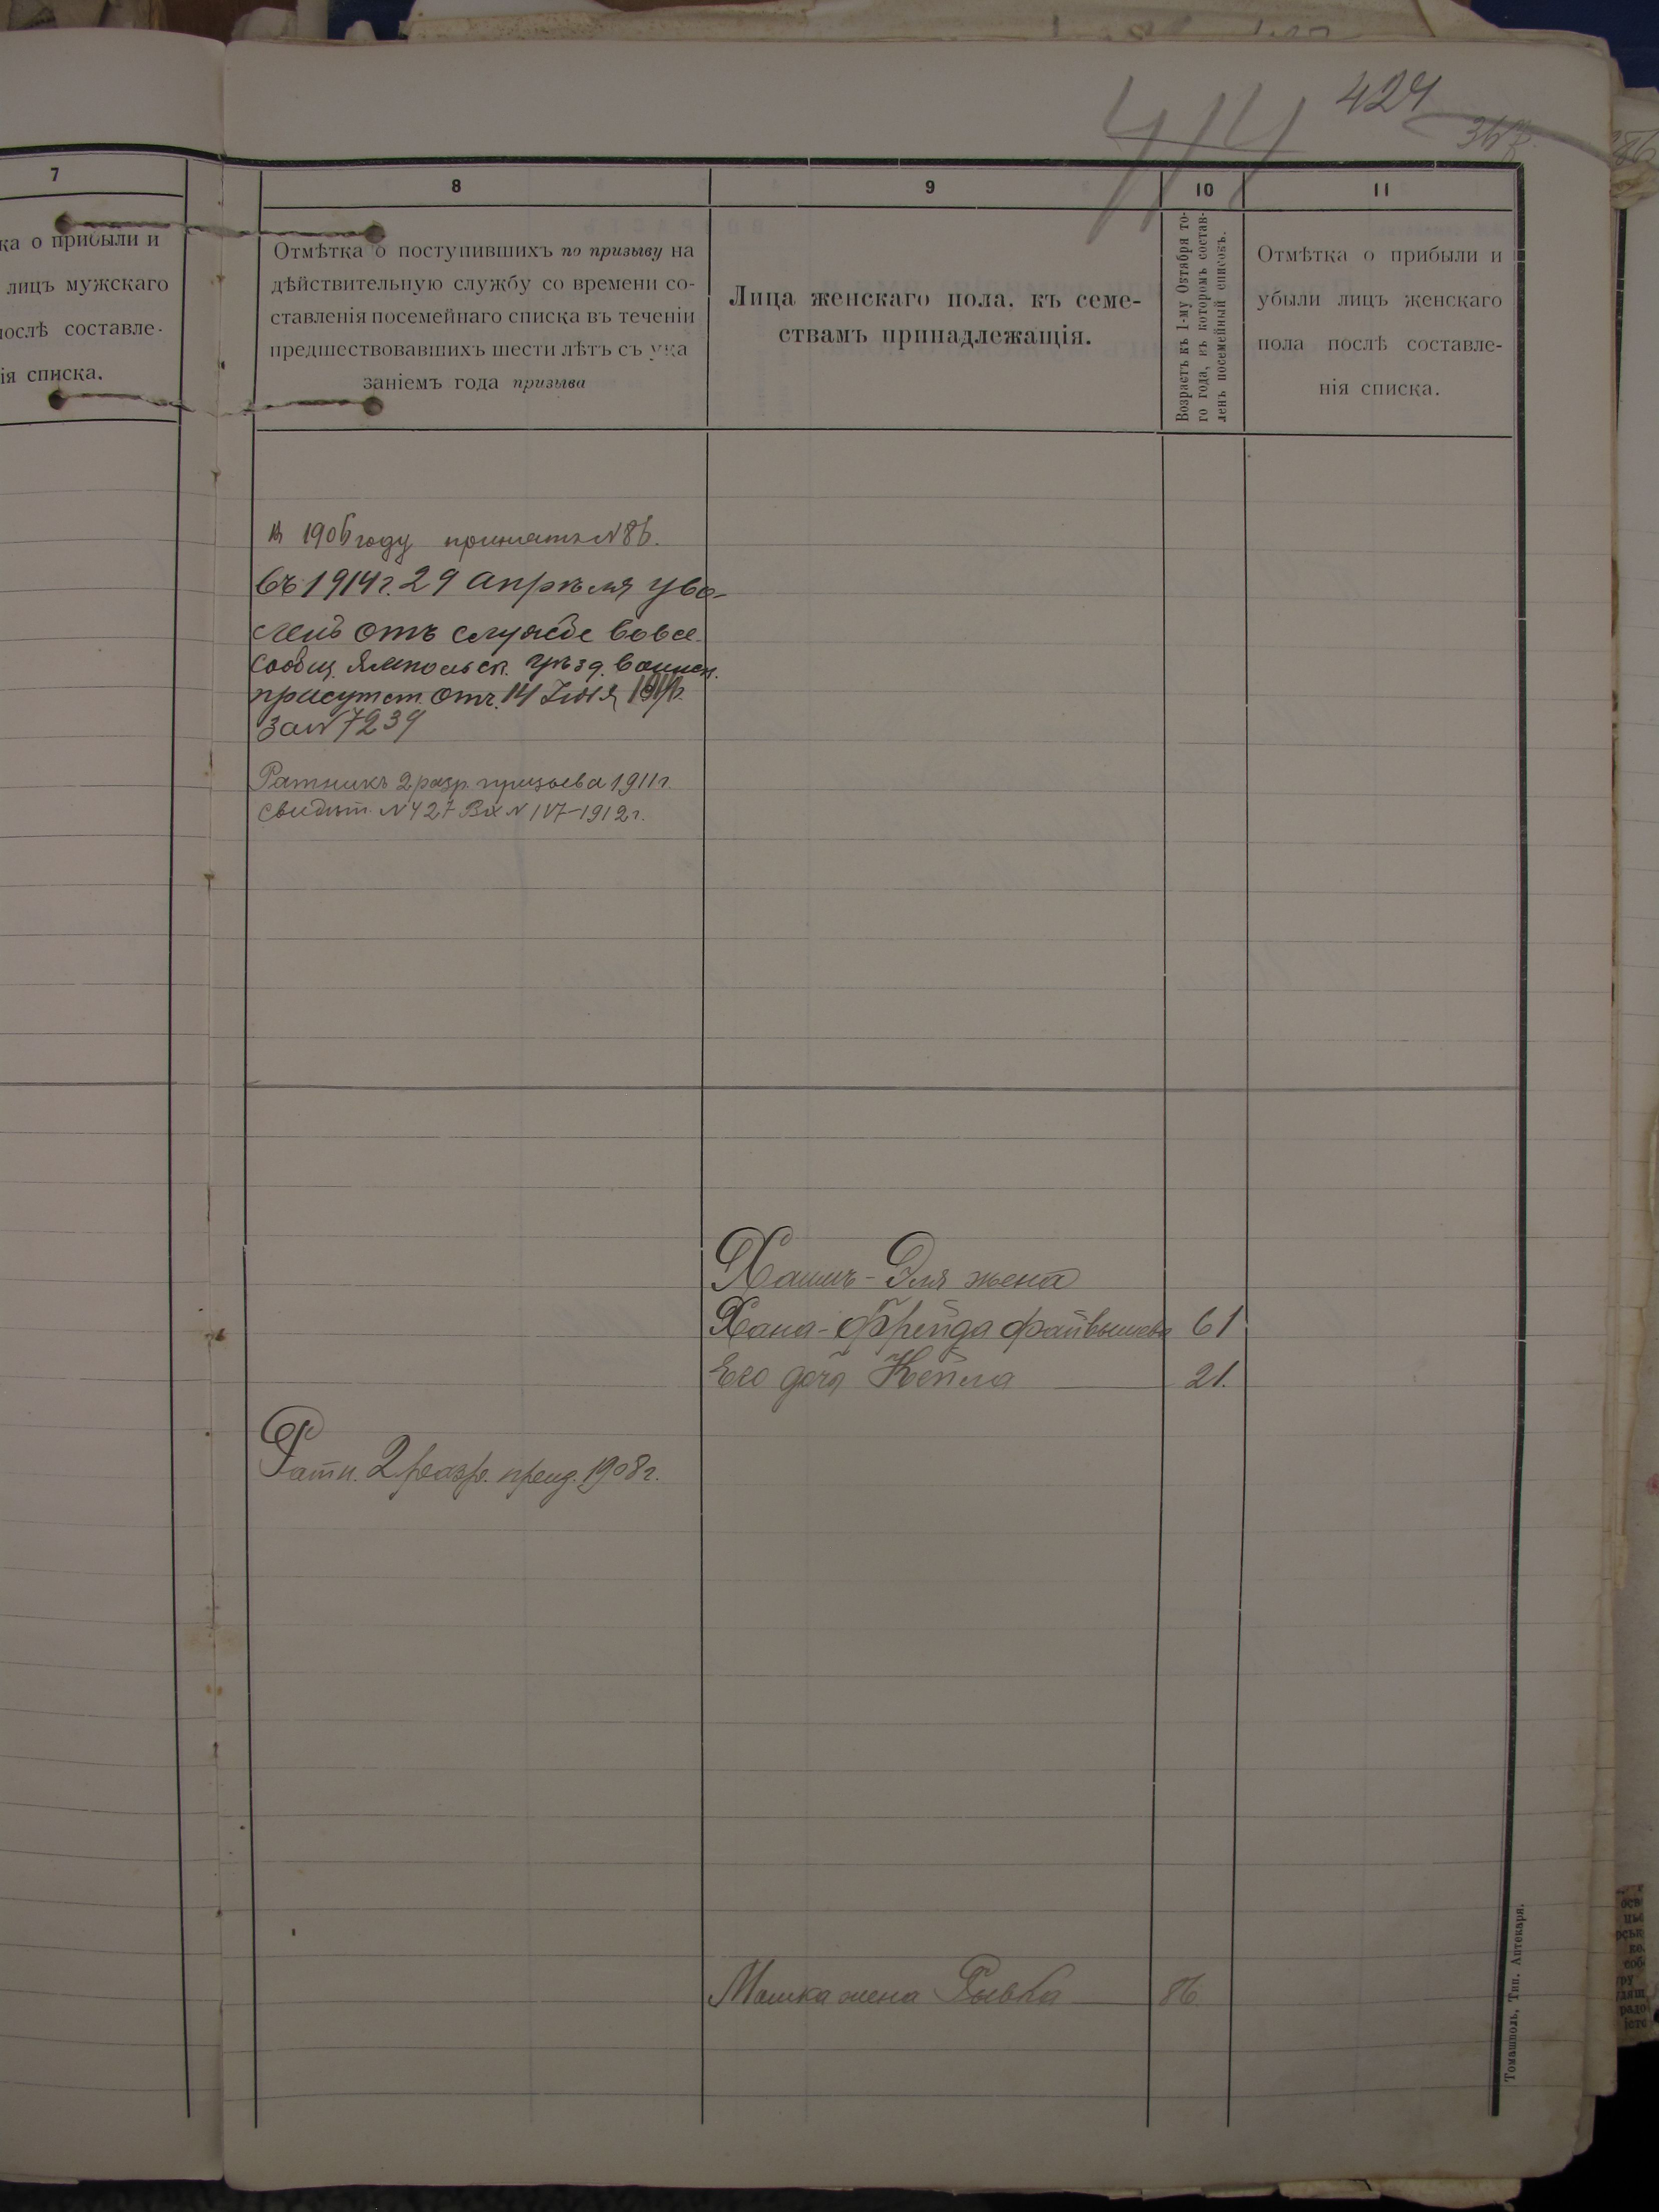 414
424
7
ка о прибыли и
лицъ мужскаго
послѣ составле-
ія списка.
8
Отмѣтка о поступившихъ по призыву на
дѣйствительную службу со времени со-
ставленія посемейнаго списка въ теченіи
предшествовавшихъ шести лѣтъ съ ука
заніемъ года призыва
9
Лица женскаго пола, къ семе-
ствамъ принадлежащія.
10
Возрастъ къ 1-му Октября то-
го года, въ которомъ состав-
ленъ посемейный списокъ.
11
Отмѣтка о прибыли и
убыли лицъ женскаго
пола послѣ составле-
нія списка.
В 1906 году принятъ № 86.
Въ 1914 г. 29 Апрѣля уво-
лен отъ службе вовсе.
Сообщ. Ямпольск. Уѣзд. Воинск.
присутст. отъ 14 Іюня 1914 г.
за № 7239
Ратникъ 2 разр. призыва 1911 г.
Свидѣт. № 427 Вх № 117-1912 г.
Хаимъ-Эля жена
Хана-Фрейда Файвышева 61
Его дочь Нейла 21.
Ратн. 2 разр. приз. 1908 г.
Мошка жена Рывка 86
Томашполь, Тип. Аптекаря.